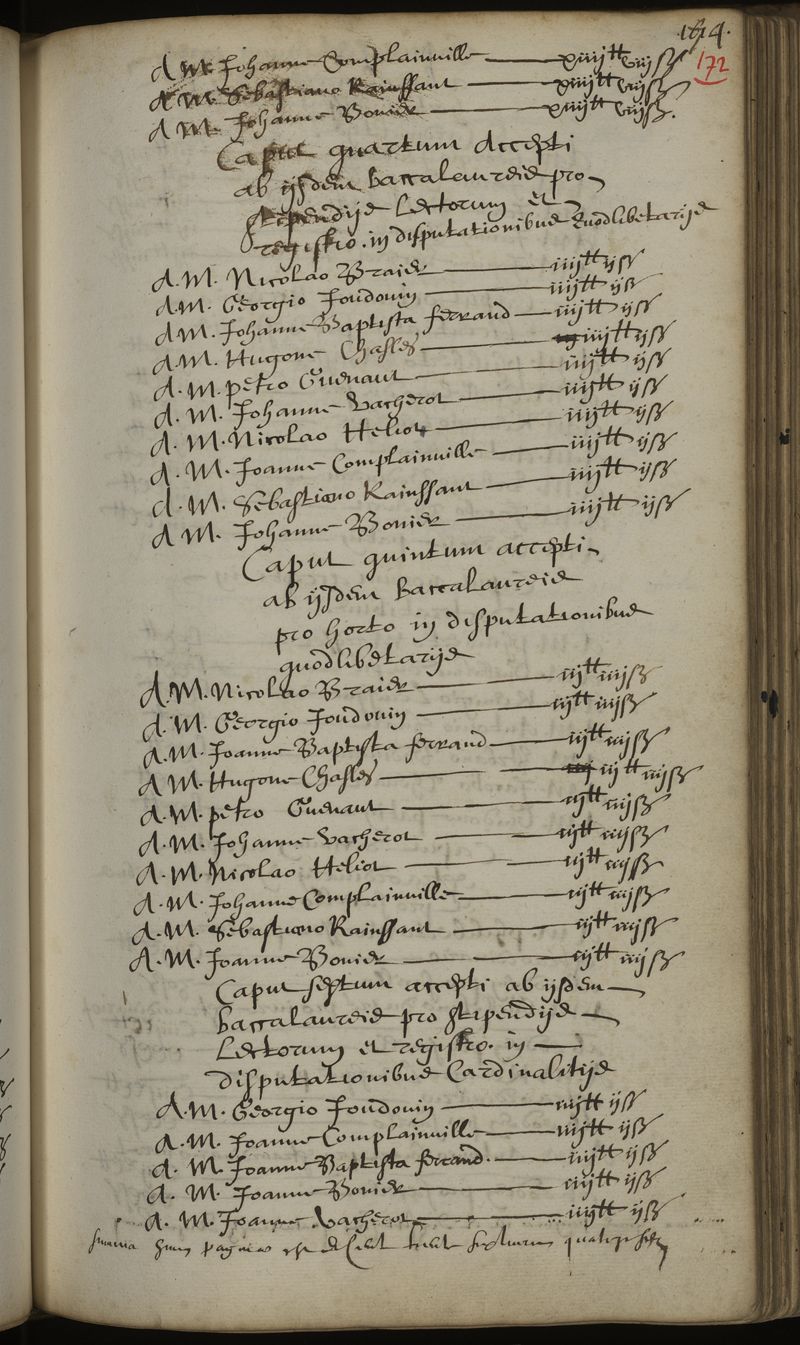 1614.
172
A M. Johanne Complainville — xviij tt viij ß
A M. Sebastiano Rainssant — xviij tt viij ß
A M. Johanne Bonier — xviij tt viij ß.
Caput quartum Accepti
ab ijsdem baccalaureis pro
stipendijs Lectorum et
registro. in disputationibus Quodlibetarijs
A. M. Nicolao Braier — iiij tt ijß
A M. Georgio Joudouin — iiij tt ijß
A M. Johanne Baptista ferrand — iiij tt ijß
A M. Hugone Chasles — iiij tt ijß
A. M. petro Guenaut — iiij tt ijß
A. M. Johanne Vacherot — iiij tt ijß
A. M. Nicolao Heliot — iiij tt ijß
A. M. Joanne Complainville — iiij tt ijß
A. M. Sebastiano Rainssant — iiij tt ijß
A M. Johanne Bonier — iiij tt ijß
Caput quintum accepti
ab ijsdem Baccalaureis
pro horto in disputationibus
quodlibetarijs
A. M. Nicolao Braier — iij tt iiijß
A. M. Georgio Joudouin — iij tt iiijß
A. M. Joanne Baptista ferrand — iij tt iiijß
A M. Hugone Chasles — iij tt iiijß
A. M. petro Guenaut — iij tt iiijß
A. M. Johanne Vacherot — iij tt iiijß
A. M. Nicolao Heliot — iij tt iiijß
A. M. Johanne Complainville — iij tt iiijß
A. M. Sebastiano Rainssant — iij tt iiijß
A. M. Joanne Bonier — iij tt iiijß
Caput septum accepti ab ijsdem
baccalaureis pro stipendijs
Lectorum et registro. in
disputationibus Cardinalitijs
A. M. Georgio Joudouin — iiij tt ijß
A. M. Joanne Complainville — iiij tt ijß
A. M. Joanne Baptista ferrand. — iiij tt ijß
A. M. Joanne Bonier — iiij tt ijß
A. M. Joanne Vacherot — iiij tt ijß
summa huius paginae est